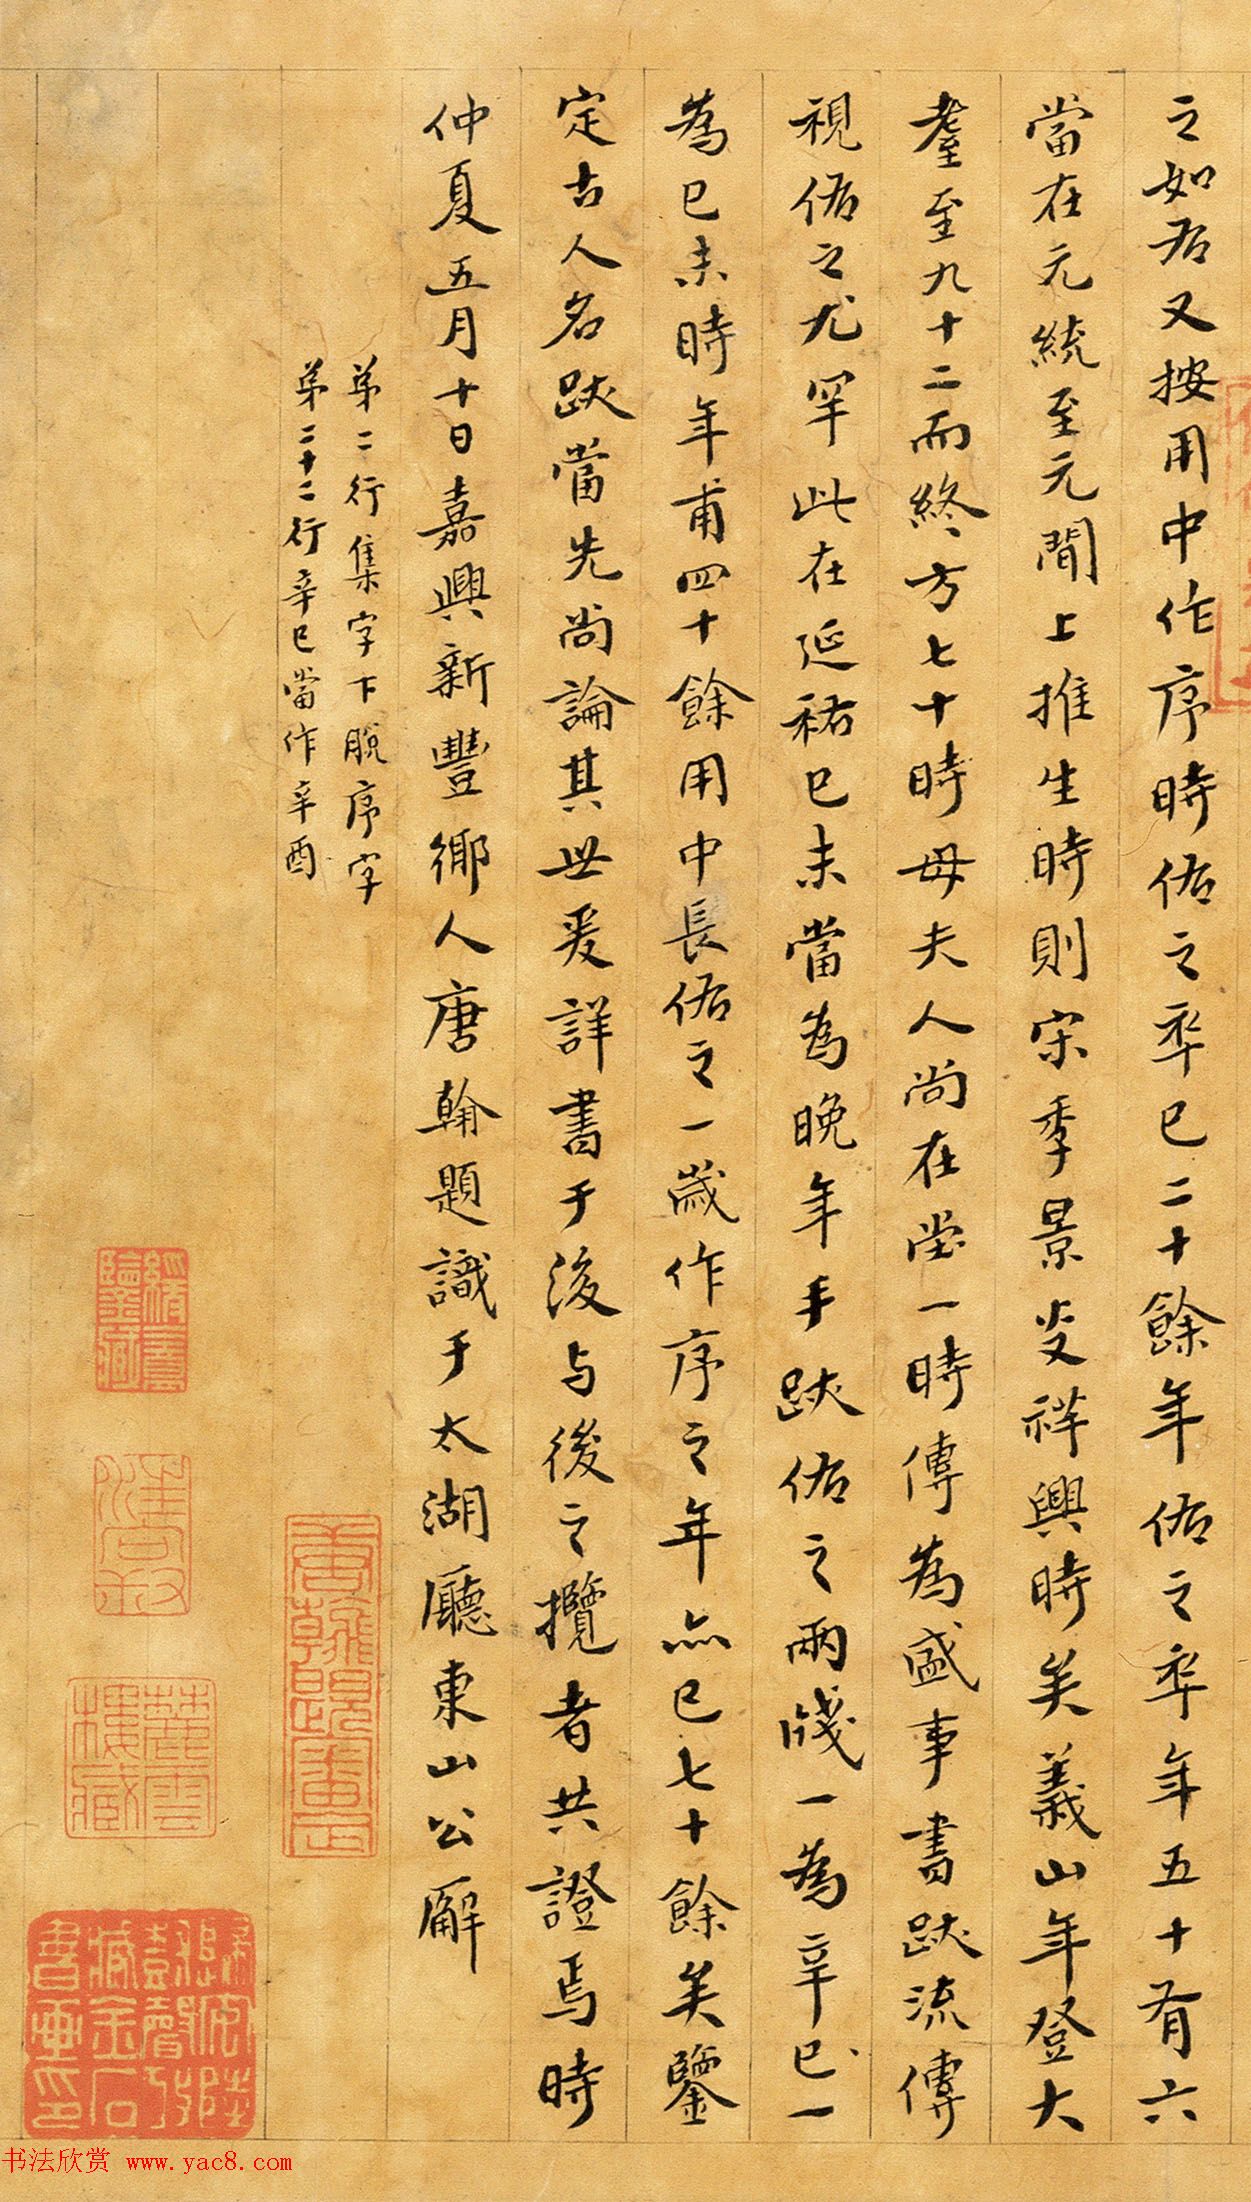 之如右又按用中作序時佑之卒已二十餘年佑之卒年五十有六
當在元統至元間上推生時則宋季景炎祥興時矣義山年登大
耋至九十二而終方七十時母夫人尚在堂一時傳為盛事書跡流傳
視佑之尤罕此在延祐己未當為晚年手跡佑之兩牋一為辛巳一
為己未時年甫四十餘用中長佑之一歲作序之年亦已七十餘矣鑒
定古人名跡當先尚論其世爰詳書于後与後之攬者共證焉時
仲夏五月十日嘉興新豐鄉人唐翰題識于太湖廳東山公廨
弟二行集字下脫序字
弟二十二行辛巳當作辛酉
唐翰題審定
麓雲樓藏
书法欣赏 www.yac8.com